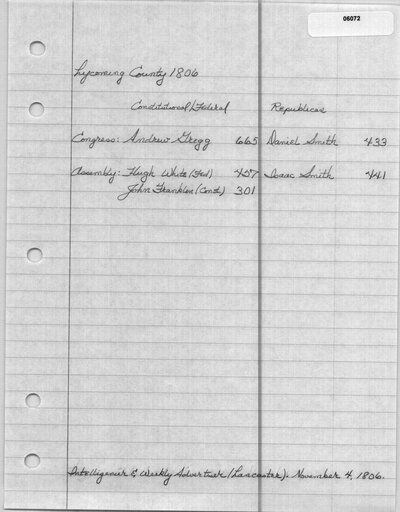 06072
Lycoming County 1806
Constitutional/Federal Republican
Congress: Andrew Gregg 665 Daniel Smith 433
Assembly: Hugh White (Fed) 457 Isaac Smith 441
John Franklin (Const) 301
Intelligencer & Weekly Advertiser (Lancaster). November 4, 1806.